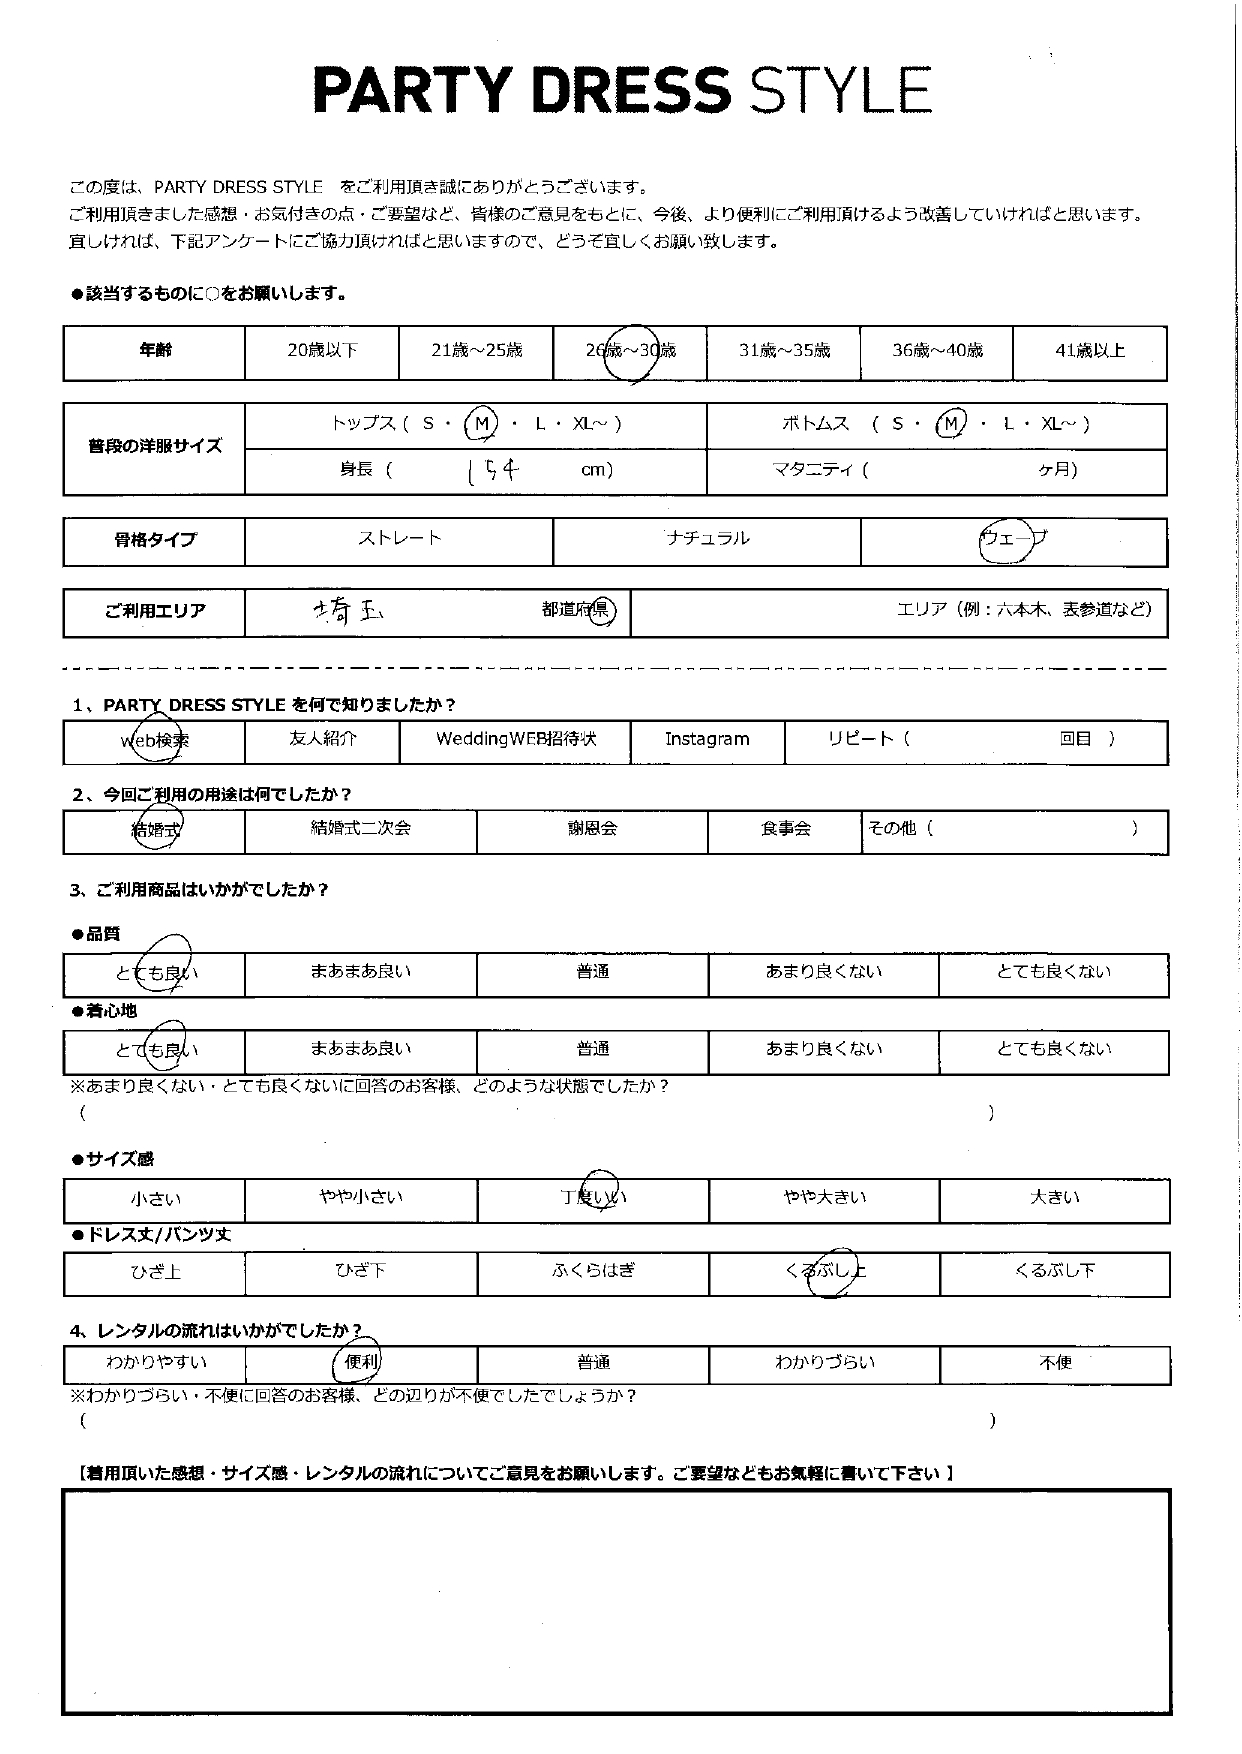 PARTY DRESS STYLE
この度は、PARTY DRESS STYLE をご利用頂き誠にありがとうございます。
ご利用頂きました感想・お気付きの点・ご要望など、皆様のご意見をもとに、今後、より便利にご利用頂けるよう改善していければと思います。
宜しければ、下記アンケートにご協力頂ければと思いますので、どうぞ宜しくお願い致します。
●該当するものに○をお願いします。
年齢 20歳以下 21歳～25歳 26歳～30歳 31歳～35歳 36歳～40歳 41歳以上
普段の洋服サイズ トップス ( S ・ M ・ L ・ XL～ ) ボトムス ( S ・ M ・ L ・ XL～ )
身長 ( 154 cm) マタニティ ( ヶ月)
骨格タイプ ストレート ナチュラル ウェーブ
ご利用エリア 埼玉 都道府県 エリア（例：六本木、表参道など）
1、PARTY DRESS STYLE を何で知りましたか？
web検索 友人紹介 WeddingWEB招待状 Instagram リピート ( 回目 )
2、今回ご利用の用途は何でしたか？
結婚式 結婚式二次会 謝恩会 食事会 その他 ( )
3、ご利用商品はいかがでしたか？
●品質
とても良い まあまあ良い 普通 あまり良くない とても良くない
●着心地
とても良い まあまあ良い 普通 あまり良くない とても良くない
※あまり良くない・とても良くないに回答のお客様、どのような状態でしたか？
( )
●サイズ感
小さい やや小さい 丁度いい やや大きい 大きい
●ドレス丈/パンツ丈
ひざ上 ひざ下 ふくらはぎ くるぶし上 くるぶし下
4、レンタルの流れはいかがでしたか？
わかりやすい 便利 普通 わかりづらい 不便
※わかりづらい・不便に回答のお客様、どの辺りが不便でしたでしょうか？
( )
【着用頂いた感想・サイズ感・レンタルの流れについてご意見をお願いします。ご要望などもお気軽に書いて下さい 】